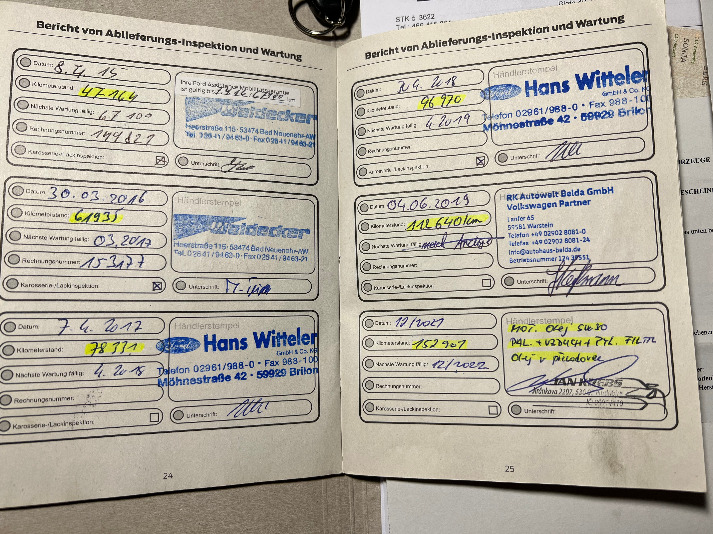 STK č. 3622
Bericht von Ablieferungs-Inspektion und Wartung
Datum: 8. 4. 15
Kilometerstand: 47164
Nächste Wartung fällig: 67 100
Rechnungsnummer: 144821
Karosserie-/Lackinspektion:
Weidecker
Heerstraße 115 · 53474 Bad Neuenahr-AW
Tel. 0 26 41 / 94 63-0 · Fax 0 26 41 / 94 63-21
Unterschrift:
Datum: 30.03.2016
Kilometerstand: 61933
Nächste Wartung fällig: 03.2017
Rechnungsnummer: 153177
Karosserie-/Lackinspektion:
Händlerstempel
Weidecker
Heerstraße 115 · 53474 Bad Neuenahr-AW
Tel. 0 26 41 / 94 63-0 · Fax 0 26 41 / 94 63-21
Unterschrift:
Datum: 7. 4. 2017
Kilometerstand: 78331
Nächste Wartung fällig: 4. 2018
Rechnungsnummer:
Karosserie-/Lackinspektion:
Händlerstempel
Ford
Hans Witteler
GmbH & Co. KG
Telefon 02961/988-0 · Fax 988-100
Möhnestraße 42 · 59929 Brilon
Unterschrift:
24
Bericht von Ablieferungs-Inspektion und Wartung
Datum: 4. 2018
Kilometerstand: 96 970
Nächste Wartung fällig: 4 2019
Rechnungsnummer:
Karosserie-/Lackinspektion:
Händlerstempel
Ford
Hans Witteler
GmbH & Co. KG
Telefon 02961/988-0 · Fax 988-100
Möhnestraße 42 · 59929 Brilon
Unterschrift:
Datum: 04.06.2019
Kilometerstand: 112 640 km
Nächste Wartung fällig: nach Anzeige
Rechnungsnummer:
Karosserie-/Lackinspektion:
RK Autowelt Belda GmbH
Volkswagen Partner
Lanfer 65
59581 Warstein
Telefon +49 02902 8081-0
Telefax +49 02902 8081-24
info@autohaus-belda.de
Betriebsnummer 124 39551
Unterschrift:
Datum: 12/2021
Kilometerstand: 152907
Nächste Wartung fällig: 12/2022
Rechnungsnummer:
Karosserie-/Lackinspektion:
Händlerstempel
MOT. Olej 5W30
Olej v převodovce
JAN KREBS
Unterschrift:
25